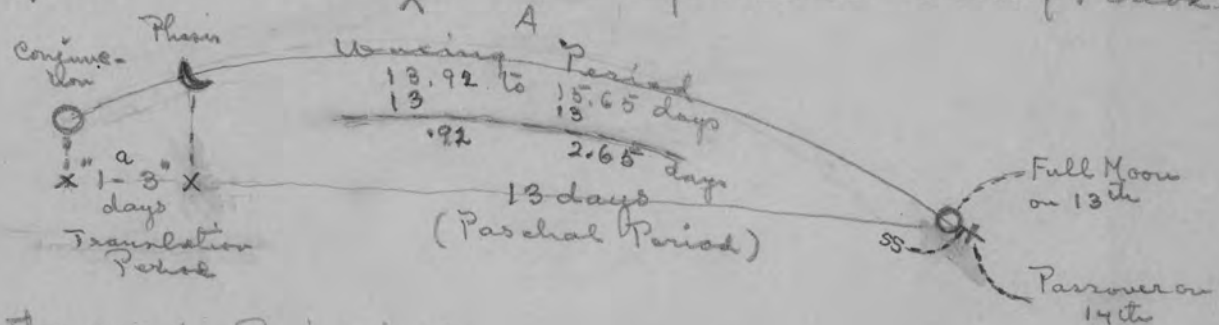 A
Conjunc-
tion
Phasis
Waxing Period
13.92 to 15.65 days
13 13
.92 2.65 days
"1-3"
a
days
Translation
Period
13 days
(Paschal Period)
Full Moon
on 13th
SS
Passover on
14th